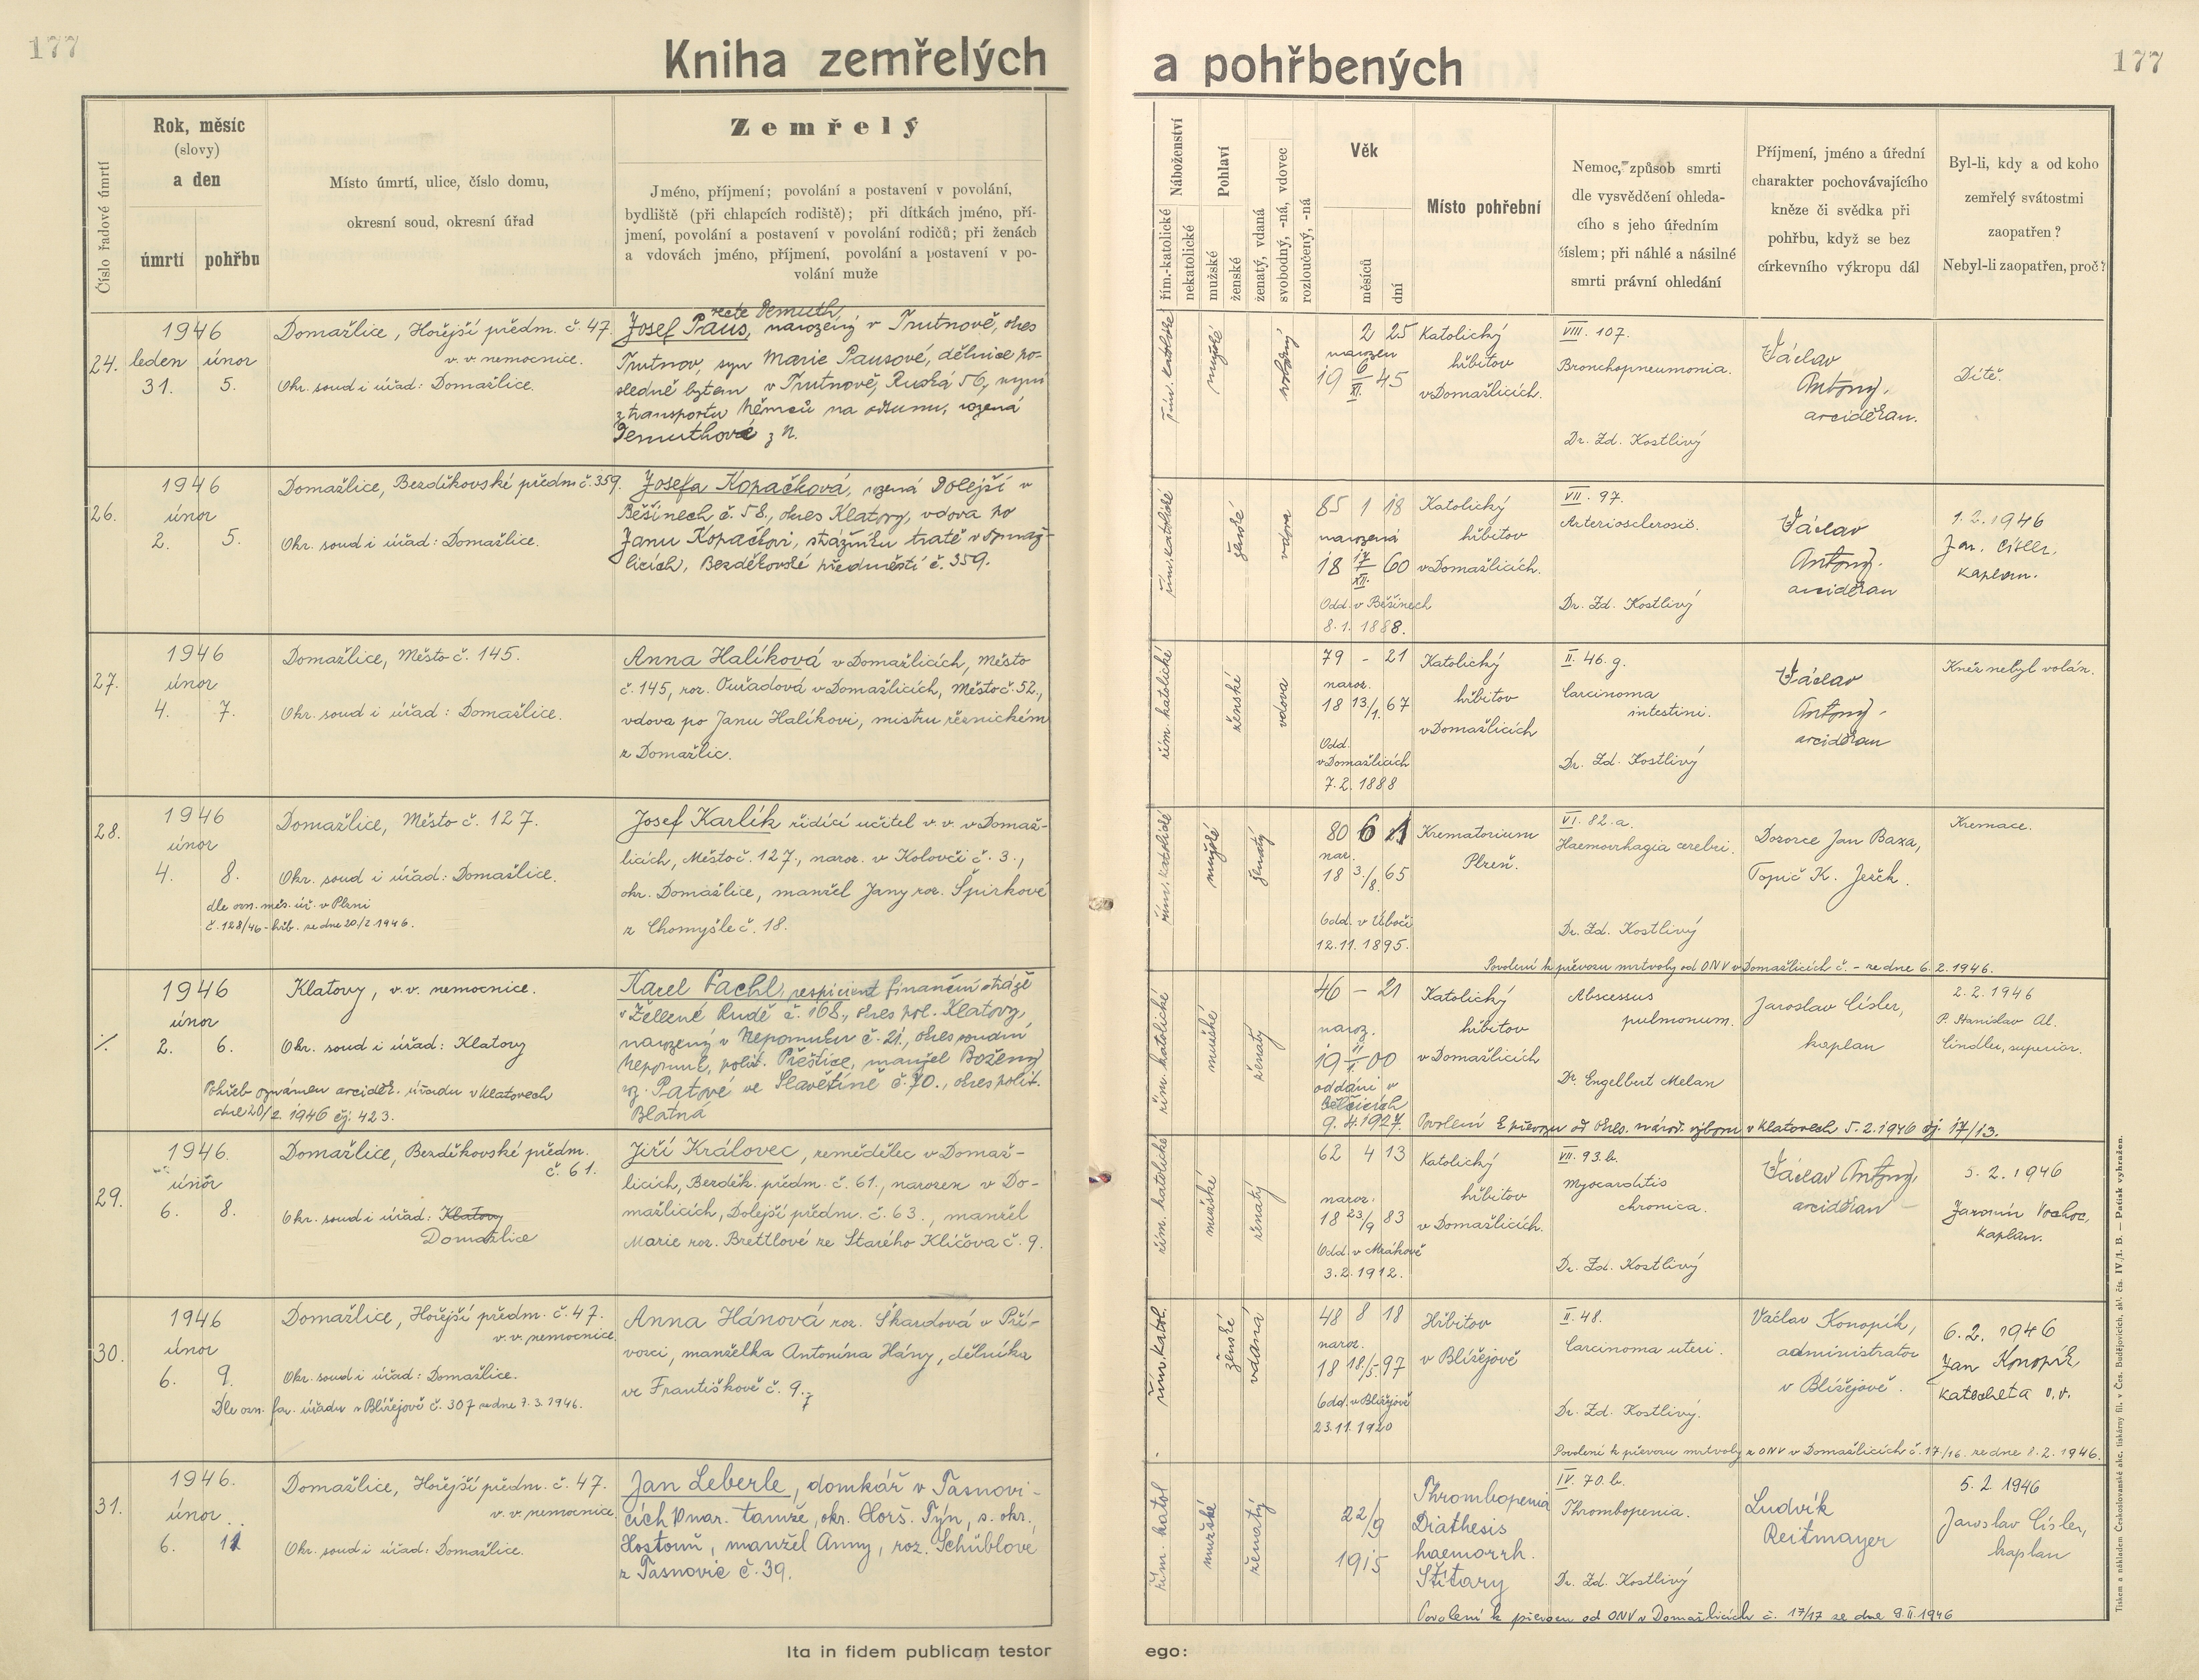 177
Kniha zemřelých
Číslo řadové úmrtí
Rok, měsíc
(slovy)
a den
úmrtí
pohřbu
Místo úmrtí, ulice, číslo domu,
okresní soud, okresní úřad
Zemřelý
Jméno, příjmení; povolání a postavení v povolání,
bydliště (při chlapcích rodiště); při dítkách jméno, pří-
jmení, povolání a postavení v povolání rodičů; při ženách
a vdovách jméno, příjmení, povolání a postavení v po-
volání muže
24.
1946
leden únor
31. 5.
Domažlice, Hořejší předm. č. 47.
v. v. nemocnice.
Okr. soud i úřad: Domažlice.
recte Demuth,
Josef Paus, narozený v Trutnově, okres
Trutnov, syn Marie Pausové, dělnice po-
sledně bytem v Trutnově, Ruská 56, nyní
z transportu Němců na odsunu, rozená
Demuthové z N.
26.
1946
únor
2. 5.
Domažlice, Bezděkovské předm č. 359.
Okr. soud i úřad: Domažlice.
Josefa Kopačková, rozená Dolejší v
Běšinech č. 58., okres Klatovy, vdova po
Janu Kopačkovi, strážníku tratě v Domaž-
licích, Bezděkovské předměstí č. 359.
27.
1946
únor
4. 7.
Domažlice, Město č. 145.
Okr. soud i úřad: Domažlice.
Anna Halíková v Domažlicích, Město
č. 145, roz. Ouřadová v Domažlicích, Město č. 52.,
vdova po Janu Halíkovi, mistru řeznickém
z Domažlic.
28.
1946
únor
4. 8.
dle ozn. měs. úř. v Plzni
č. 128/46 - hřb. ze dne 20/2 1946.
Domažlice, Město č. 127.
Okr. soud i úřad: Domažlice.
Josef Karlík řídící učitel v. v. v Domaž-
licích, Město č. 127., naroz. v Kolovči č. 3.,
okr. Domažlice, manžel Jany roz. Špirkové
z Chomyšle č. 18.
./.
1946
únor
2. 6.
Klatovy, v. v. nemocnice.
Okr. soud i úřad: Klatovy
Pohřeb oznámen arciděk. úřadu v Klatovech
dne 20/2. 1946 čj. 423.
Karel Pachl, respicient finanční stráže
v Železné Rudě č. 168., okres pol. Klatovy,
narozený v Nepomuku č. 21., okres soudní
Nepomuk, polit. Přeštice, manžel Boženy
roz. Patové ve Slavětíně č. 70., okres polit.
Blatná
29.
1946.
únor
6. 8.
Domažlice, Bezděkovské předm.
č. 61.
Okr. soud i úřad: Klatovy
Domažlice
Jiří Královec, zemědělec v Domaž-
licích, Bezděk. předm. č. 61., narozen v Do-
mažlicích, Dolejší předm. č. 63., manžel
Marie roz. Brettlové ze Starého Klíčova č. 9.
30.
1946
únor
6. 9.
Domažlice, Hořejší předm. č. 47.
v. v. nemocnice.
Okr. soud i úřad: Domažlice.
Dle ozn. far. úřadu v Blížejově č. 307 ze dne 7. 3. 1946.
Anna Hánová roz. Škardová v Pří-
vozci, manželka Antonína Hány, dělníka
ve Františkově č. 9.
31.
1946.
únor
6. 11
Domažlice, Hořejší předm. č. 47.
v. v. nemocnice.
Okr. soud i úřad: Domažlice.
Jan Leberle, domkář v Tasnovi-
cích nar. tamže, okr. Horš. Týn, s. okr.
Hostouň, manžel Anny, roz. Schüblové
z Tasnovic č. 39.
Ita in fidem publicam testor
177
a pohřbených
Náboženství
řím.-katolické
nekatolické
Pohlaví
mužské
ženské
ženatý, vdaná
svobodný, -ná, vdovec
rozloučený, -ná
Věk
měsíců
dní
Místo pohřební
Nemoc, způsob smrti
dle vysvědčení ohleda-
cího s jeho úředním
číslem; při náhlé a násilné
smrti právní ohledání
Příjmení, jméno a úřední
charakter pochovávajícího
kněze či svědka při
pohřbu, když se bez
církevního výkropu dál
Byl-li, kdy a od koho
zemřelý svátostmi
zaopatřen?
Nebyl-li zaopatřen, proč?
řím. katolické
mužské
svobodný
2 25
narozen
19 6/XI. 45
Katolický
hřbitov
v Domažlicích.
VIII. 107.
Bronchopneumonia.
Dr. Zd. Kostlivý
Václav
Antony.
arciděkan.
Dítě.
řím. katolické
ženské
vdova
85 1 18
narozená
18 17/XII. 60
Odd. v Běšinech
8. 1. 1888.
Katolický
hřbitov
v Domažlicích.
VII. 97.
Arteriosclerosis.
Dr. Zd. Kostlivý
Václav
Antony.
arciděkan
1. 2. 1946
Jar. Cisler,
kaplan.
řím. katolické
ženské
vdova
79 - 21
naroz.
18 13/1. 67
Odd.
v Domažlicích
7. 2. 1888
Katolický
hřbitov
v Domažlicích
II. 46. g.
Carcinoma
intestini.
Dr. Zd. Kostlivý
Václav
Antony -
arciděkan
Kněz nebyl volán.
řím. katolické
mužské
ženatý
80 6 1
nar.
18 3./8. 65
Odd. v Úboči
12. 11. 1895.
Krematorium
Plzeň.
VI. 82. a.
Haemorrhagia cerebri.
Dr. Zd. Kostlivý
Dozorce Jan Baxa,
Topič K. Ješek.
Kremace.
Povolení k převozu mrtvoly od ONV v Domažlicích č. - ze dne 6. 2. 1946.
řím. katolické
mužské
ženatý
46 - 21
naroz.
19 00
oddáni v
Bělčicích
9. 4. 1927.
Katolický
hřbitov
v Domažlicích
Abscessus
pulmonum.
Dr. Engelbert Melan
Jaroslav Císler,
kaplan
2. 2. 1946
P. Stanislav Al.
Lindler, superior.
Povolení k převozu od okres. národ. výboru v Klatovech 5. 2. 1946 čj. 17/13.
řím. katolické
mužské
ženatý
62 4 13
naroz.
18 23/9 83
Odd. v Mrákově
3. 2. 1912.
Katolický
hřbitov
v Domažlicích.
VII. 93. b.
Myocarditis
chronica.
Dr. Zd. Kostlivý
Václav Antony,
arciděkan
5. 2. 1946
Jaromír Vochoc,
kaplan.
řím. katol.
ženské
vdaná
48 8 18
naroz.
18 18./5. 97
Odd. v Blížejově
23. 11. 1920
Hřbitov
v Blížejově
II. 48.
Carcinoma uteri.
Dr. Zd. Kostlivý.
Václav Konopík,
administrator
v Blížejově.
6. 2. 1946
Jan Konopík
katecheta v. v.
Povolení k převozu mrtvoly z ONV v Domažlicích č. 17/16. ze dne 8. 2. 1946.
řím. katol
mužské
ženatý
22/9
1915
Thrombopenia
Diathesis
haemorrh.
Štítary
IV. 70. b.
Thrombopenia.
Dr. Zd. Kostlivý
Ludvík
Reitmayer
5. 2. 1946
Jaroslav Císler,
kaplan
Povolení k převozu od ONV v Domažlicích č. 17/17 ze dne 9. II. 1946
ego:
Tiskem a nákladem Českoslovanské akc. tiskárny fil. v Čes. Budějovicích, skl. čís. IV./1. B. — Patisk vyhražen.